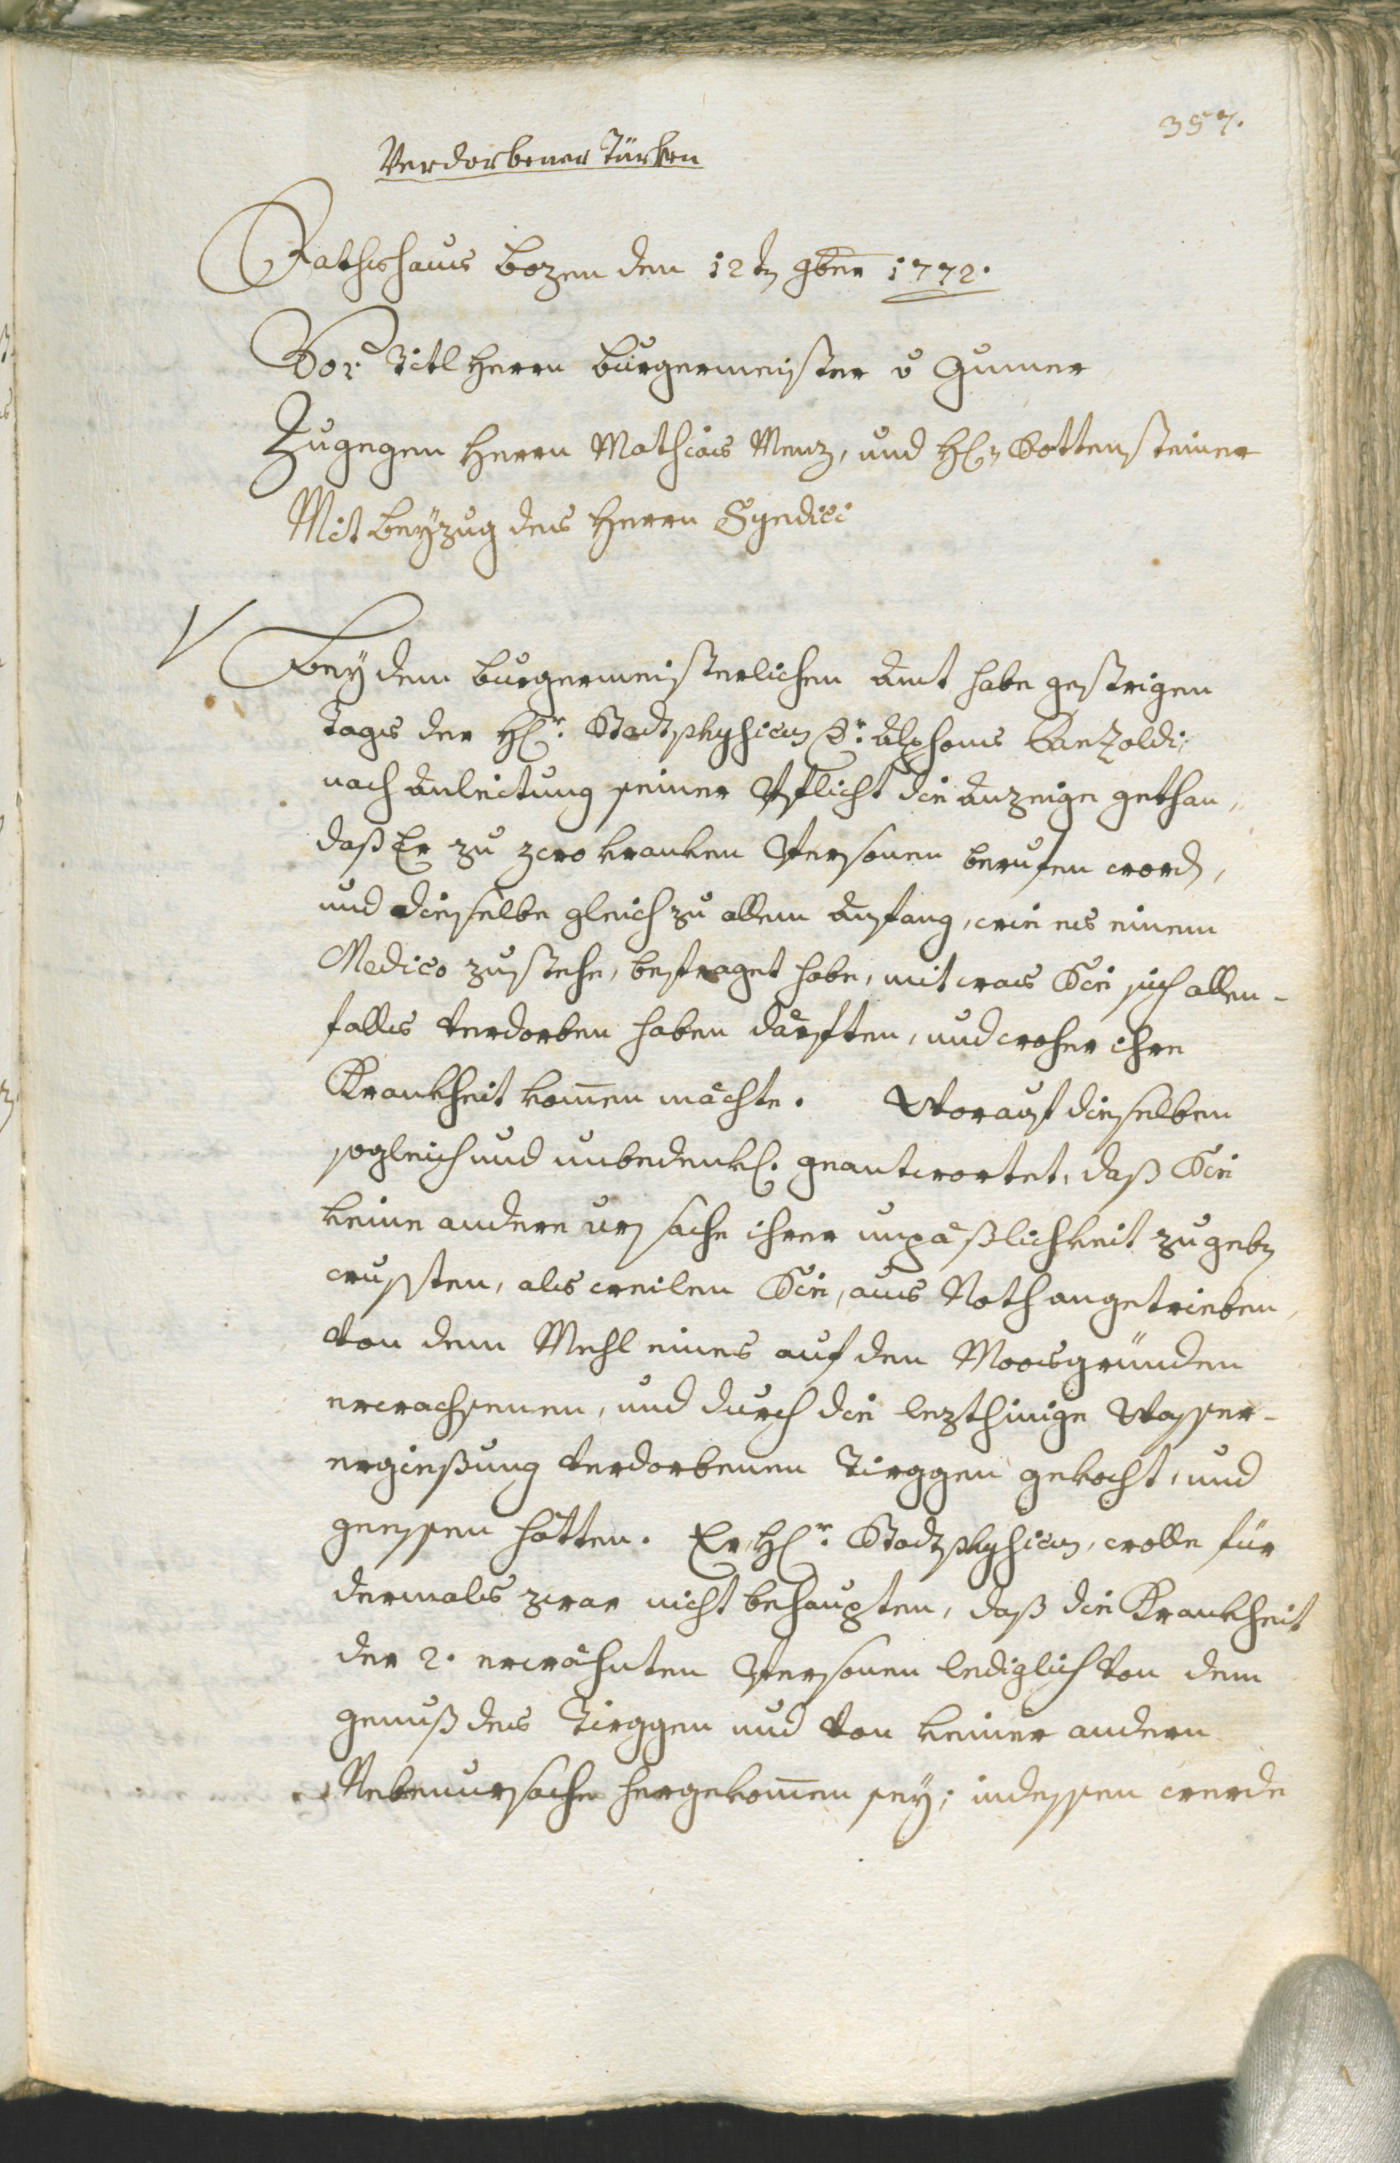 357.
Verdorbener Türken
Rathshaus Bozen den 12ten 9ber 1772.
Vor Titl Herrn Burgermeister v Gumer
Zugegen Herrn Mathias Menz, und H: Gottensteiner
Mit Beÿzug des Herrn Syndici
Beÿ dem Burgermeisterlichen Amt habe gestrigen
Tags der H:r Stadtphysicus Dr: Alphons
nach Anleitung seiner Pflicht die Anzeige gethan,
daß Er zu zwo kranken Personen berufen word,
und dieselbe gleich zu allem Anfang, wie es einem
Medico zustehe, befraget habe, mit was Sie sich allen-
falls verdorben haben därften, und woher ihre
Krankheit kom̅en mächte. Worauf dieselben
sogleich und unbedenkl. geantwortet, daß Sie
keine andere Ursache ihrer unpäßlichkeit zugeben
wussten, als weilen Sie, aus Noth angetrieben,
von dem Mehl eines auf den Moosgründen
erwachsenen, und durch die lezthinige Wasser-
ergießung verdorbenen Tirggen gekocht, und
geessen hätten. Er H:r Stadtphysicus, wolle für
dermals zwar nicht behaupten, daß die Krankheit
der 2. erwähnten Personen lediglich von dem
genuß des Tirggen und von keiner andern
Nebenursache hergekom̅en seÿ; indessen werde